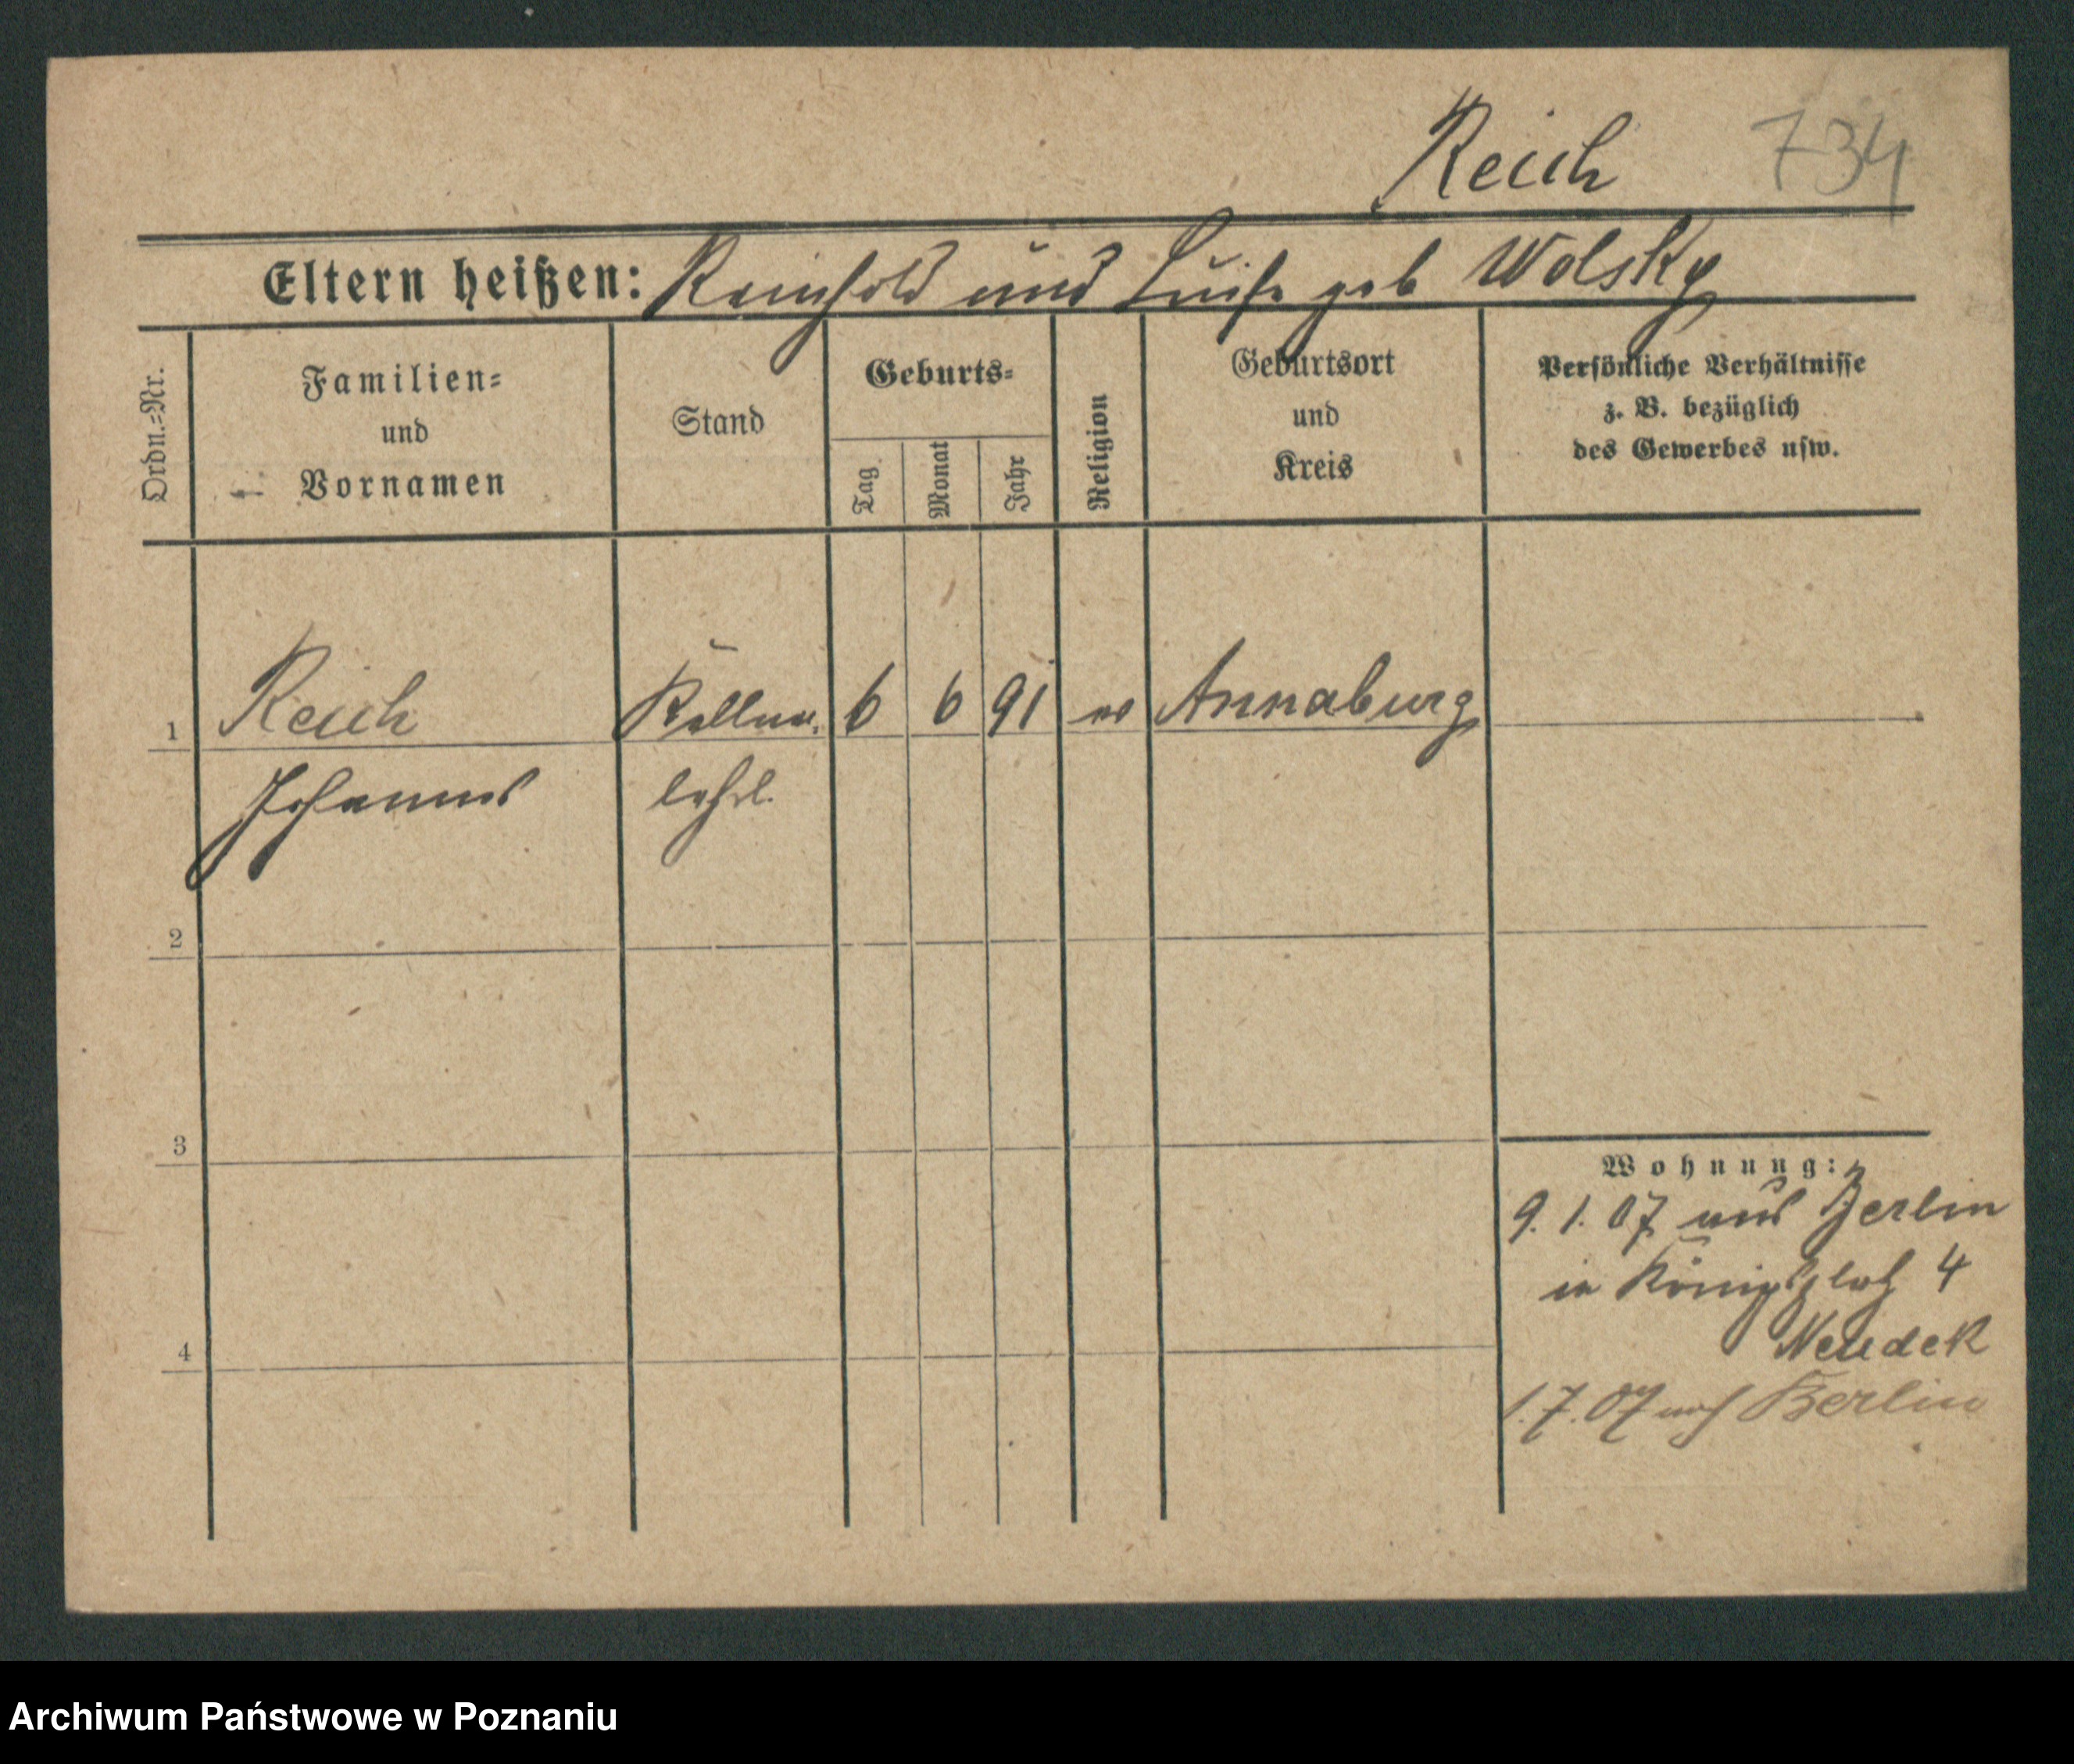 Reich 734
Eltern heißen: Reinhold und Luise geb Wolsky
Ordn.=Nr.
Familien=
und
Vornamen
Stand
Geburts=
Tag
Monat
Jahr
Religion
Geburtsort
und
Kreis
Persönliche Verhältnisse
z. B. bezüglich
des Gewerbes usw.
1 Reich Kellner 6 6 91 ev Annaburg
Johannes lehrl.
2
3
4
Wohnung:
9. 1. 07 aus Berlin
in Königsplatz 4
Neudek
1. 7. 07 nach Berlin
Archiwum Państwowe w Poznaniu